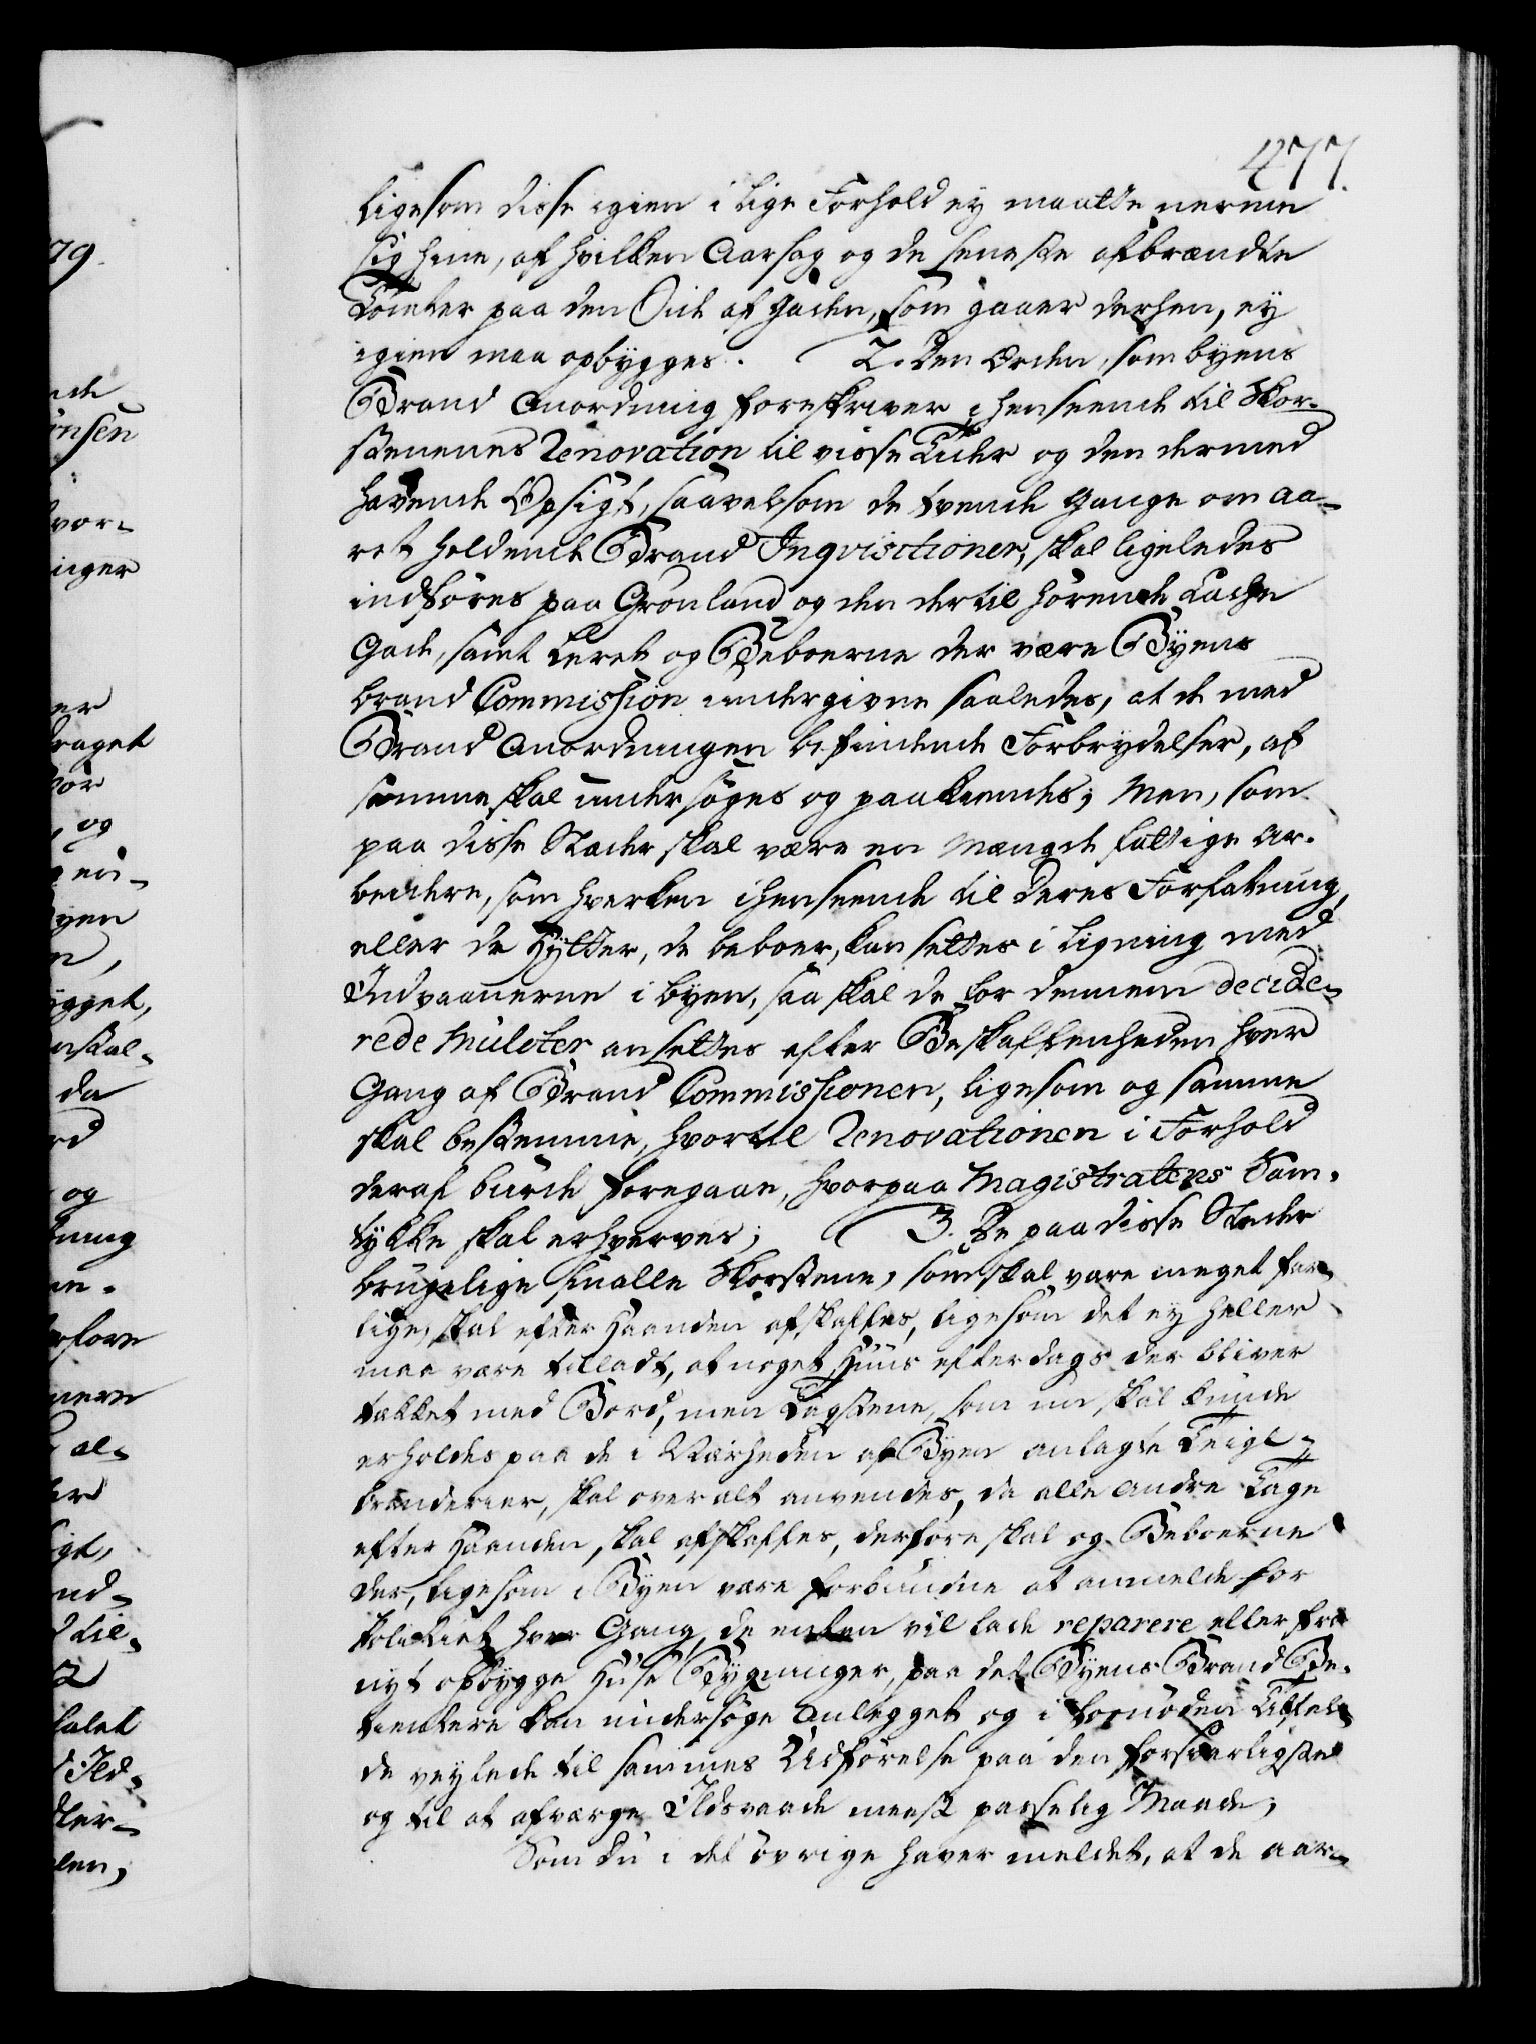 477.
ligesom disse igien i lige Forhold ey maatte nerme
sig hine, af hvilken Aarsag og de seneste afbrændte
Tomter paa den Side af Gaden, som gaaer derhen, ey
igien maa opbygges. 2. Den Orden, som byens
Brand Anordning foreskriver i henseende til Skor-
steenenes Renovation til visse Tider og den dermed
havende Opsigt, saavelsom de tvende Gange om Aa-
ret holdende Brand Inqvisitioner, skal ligeledes
indføres paa Grønland og den dertil hørende
Gade, samt Leret og Beboerne der være Byens
brand Commission undergivne saaledes, at de mod
Brand Anordningen befindende Forbrydelser, af
samme skal undersøges og paakiendes; Men, som
paa disse Stæder skal være en Mængde fattige Ar-
beidere, som hverken i henseende til deres Forfatning,
eller de Hytter, de beboer, kan settes i ligning med
Indvaanerne i byen, saa skal de for dennem decide-
rede Mulcter ansettes efter Beskaffenheden hver
Gang af Brand Commissionen, ligesom og samme
skal bestemme, hvortil Renovationen i Forhold
deraf burde foregaae, hvorpaa Magistratens Sam-
tykke skal erhverves; 3. De paa disse Stæder
brugelige smalle Skorstene, som skal være meget far-
lige, skal efter Haanden afskaffes, ligesom det ey heller
maa være tilladt, at noget Huus efterdags der bliver
tækket med Bord, men Tagsteene, som nu skal kunde
erholdes paa de i Nærheden af Byen anlagte Teigl-
brænderier, skal overalt anvendes, da alle andre Tage
efter Haanden skal afskaffes, derfore skal og Beboerne
der, ligesom i Byen være forbundne at anmelde for
Politiet hver Gang, de enten vil lade reparere eller fra
nyt opbygge Huse Bygninger, paa det Byens Brand Be-
tientere kan undersøge Anlegget og i fornøden Tilfel-
de veylede til sammes Udførelse paa den forsvarligste
og til at afværge Ildsvaade meest passelig Maade;
Som Du i det øvrige haver meldet, at de aar-